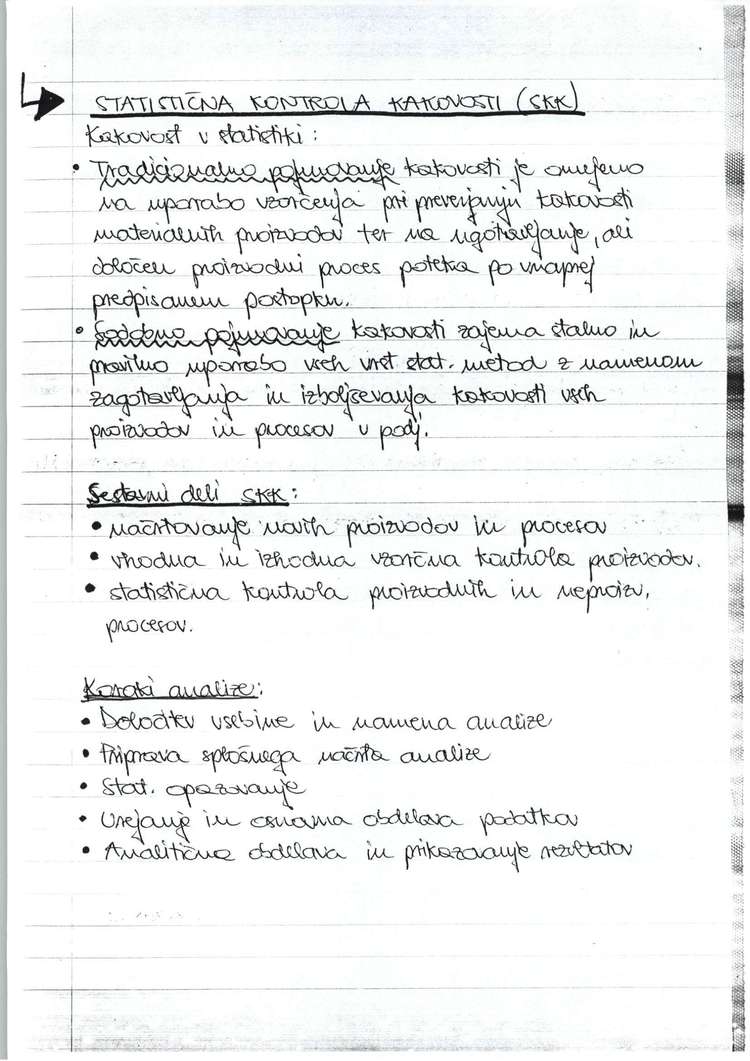 STATISTIČNA KONTROLA KAKOVOSTI (SKK)
Kakovost v statistiki :
• Tradicionalno pojmovanje kakovosti je omejeno
na uporabo vzorčenja pri preverjanju kakovosti
materialnih proizvodov ter na ugotavljanje, ali
določen proizvodni proces poteka po vnaprej
predpisanem postopku.
• Sodobno pojmovanje kakovosti zajema stalno in
pravilno uporabo vseh vrst stat. metod z namenom
zagotavljanja in izboljševanja kakovosti vseh
proizvodov in procesov v podj.
Sestavni deli SKK :
• načrtovanje novih proizvodov in procesov
• vhodna in izhodna vzorčna kontrola proizvodov.
• statistična kontrola proizvodnih in neproizv.
procesov.
Koraki analize :
• Določitev vsebine in namena analize
• Priprava splošnega načrta analize
• Stat. opazovanje
• Urejanje in osnovna obdelava podatkov
• Analitična obdelava in prikazovanje rezultatov